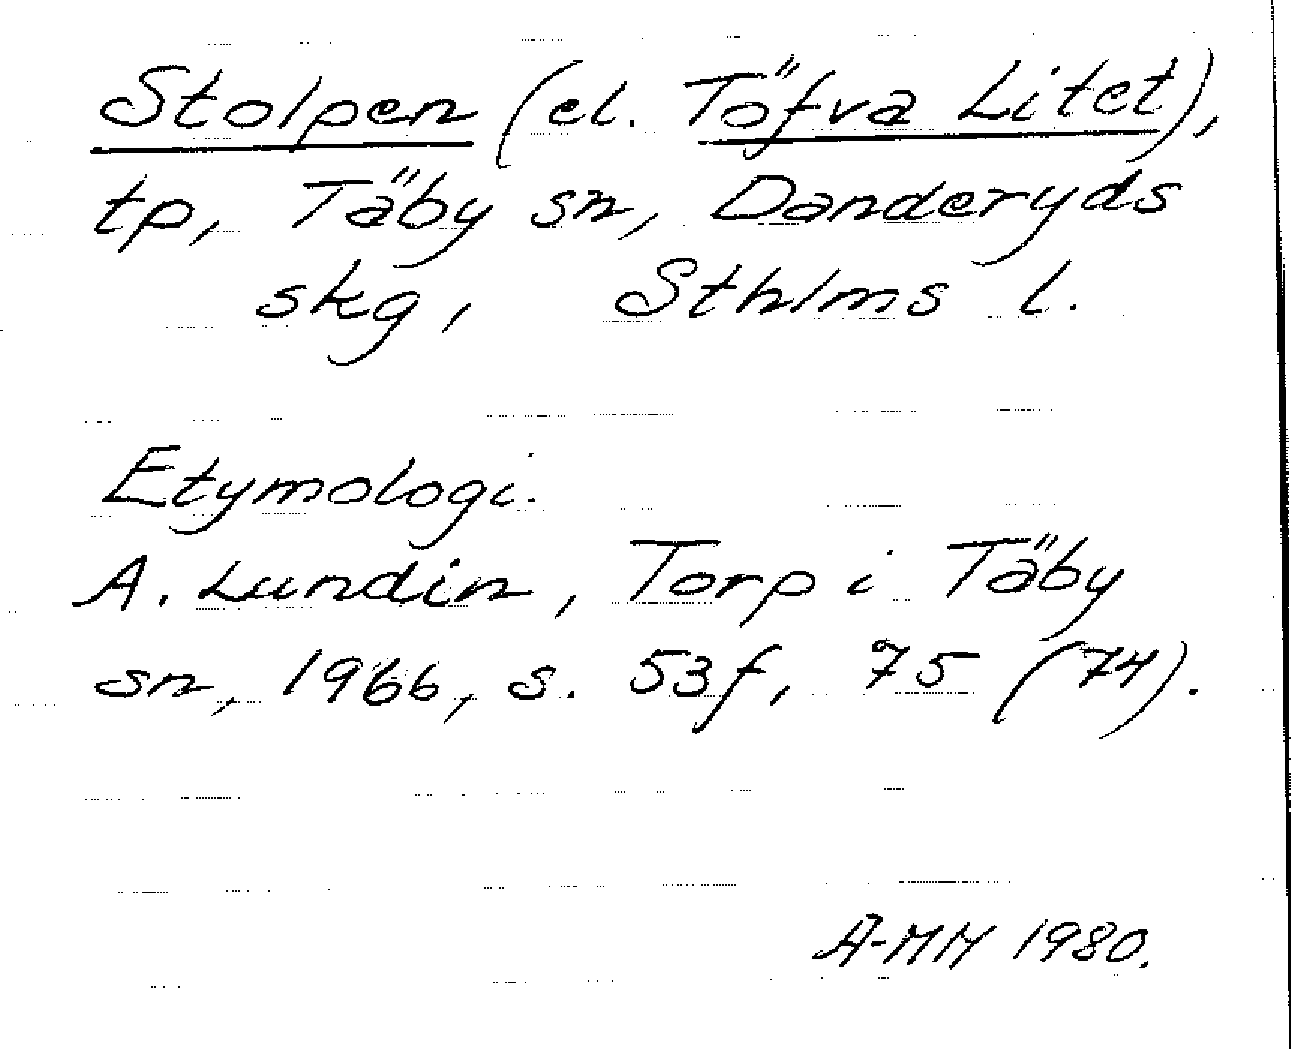 Stolpen (el. Töfva Litet),
tp, Täby sn, Danderyds
skg, Sthlms l.
Etymologi.
A. Lundin, Torp i Täby
sn, 1966, s. 53f, 75 (74).
A-MM 1980.